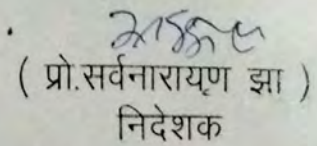 ( प्रो.सर्वनारायण झा )
निदेशक